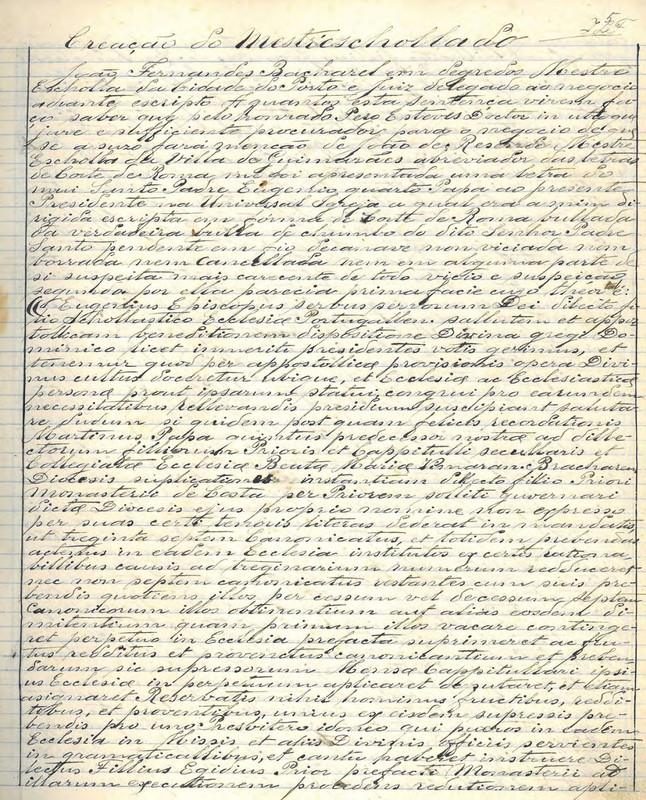 Creação do Mestrescholado
João Fernandes Bacharel em degredos Mestre
Escholla da Cidade do Porto e Juiz delegado ao negocio
advante escripto A quantos esta sentença virem fa-
ço saber que pelo honrado Pero Esteves Doctor in utroque
jure e sufficiente procurador para o negocio de que
se a suzo fará menção de João de Resende Mestre
Escholla da Villa de Guimarães abreviador das letras
de Corte de Roma, mi foi apresentada uma letra do
mui Santo Padre Eugenio quarto Papa ao presente
Presidente na Universal Igreja a qual era a mim di-
rigida escripta em forma de Corte de Roma bullada
da verdadeira bulla de chumbo do dito Senhor Padre
Santo pendente em fio de canave non viciada nem
borrada nem cancellada nem em alguma parte de
si suspeita mais carecente de todo vicio e suspeição
segundo por ella parecia prima facie cujo theor é:
Eugenius Episcopus servus servorum Dei dilecto fi-
lio Schollastico Ecclesiæ Portugallen. sallutem et appos-
tollicam benedictionem dispositione Divina gregi Do-
minico licet inmeriti presidentes votis gerimus, et
tenemur quod per appostollicæ provisionis opera Divi-
nus cultus docretur ubique, et Ecclesiæ ac Ecclesiasticæ
personæ prout ipsarum statui congrui pro earundem
necessitatibus rellevandis presidium suscipiant saluta-
re Dudum si quidem post quam felicis recordationis
Martinus Papa quintus predecessor nostræ ad dille-
ctorum filliorum Prioris et Cappitulli secullaris et
Collegiatæ Ecclesiæ Beatæ Mariæ Vimaran. Bracharen
Diocesis suplicationes instantiam dillecto filio Priori
Monasterii de Costa per Priorem solliti guvernari
dictæ Diocesis ejus proprio nomine non expresso
per suas certi tenoris literas dederat in mandatis
ut treginta septem Canonicatus, et totidem prebendas
actenus in eadem Ecclesia institutos ex certis rationa
billibus causis ad treginarium numerum redduceret
nec non septem canonicatus restantes cum suis pre-
bendis quotiens illos per cessum vel decessum Septem
Canonicorum illos obtinentium aut alias eosdem di-
mitentium quam primum illos vacar continge-
ret perpetuo in Ecclesia prefacta suprimeret ac fru-
tus redditus et proventus canonicantium et preben
darum sic supressorum Mensæ Cappitullari ipsi-
us Ecclesiæ in perpetuum aplicaret deputaret, et etiam
asignaret Reservatis nihil hominus fructibus, reddi-
tibus, et proventibus, unius ex eisdem supressis pre-
bendis pro uno Presbitero idoneo qui pueros in eadem
Ecclesia in Missis et aliis Divinis officiis servientes
in gramaticallibus, et cantu haberet instruere Di-
lectus Fillius Egidius Prior prefacti Monasterii ad
illarum executionem procedens redutionem apli-